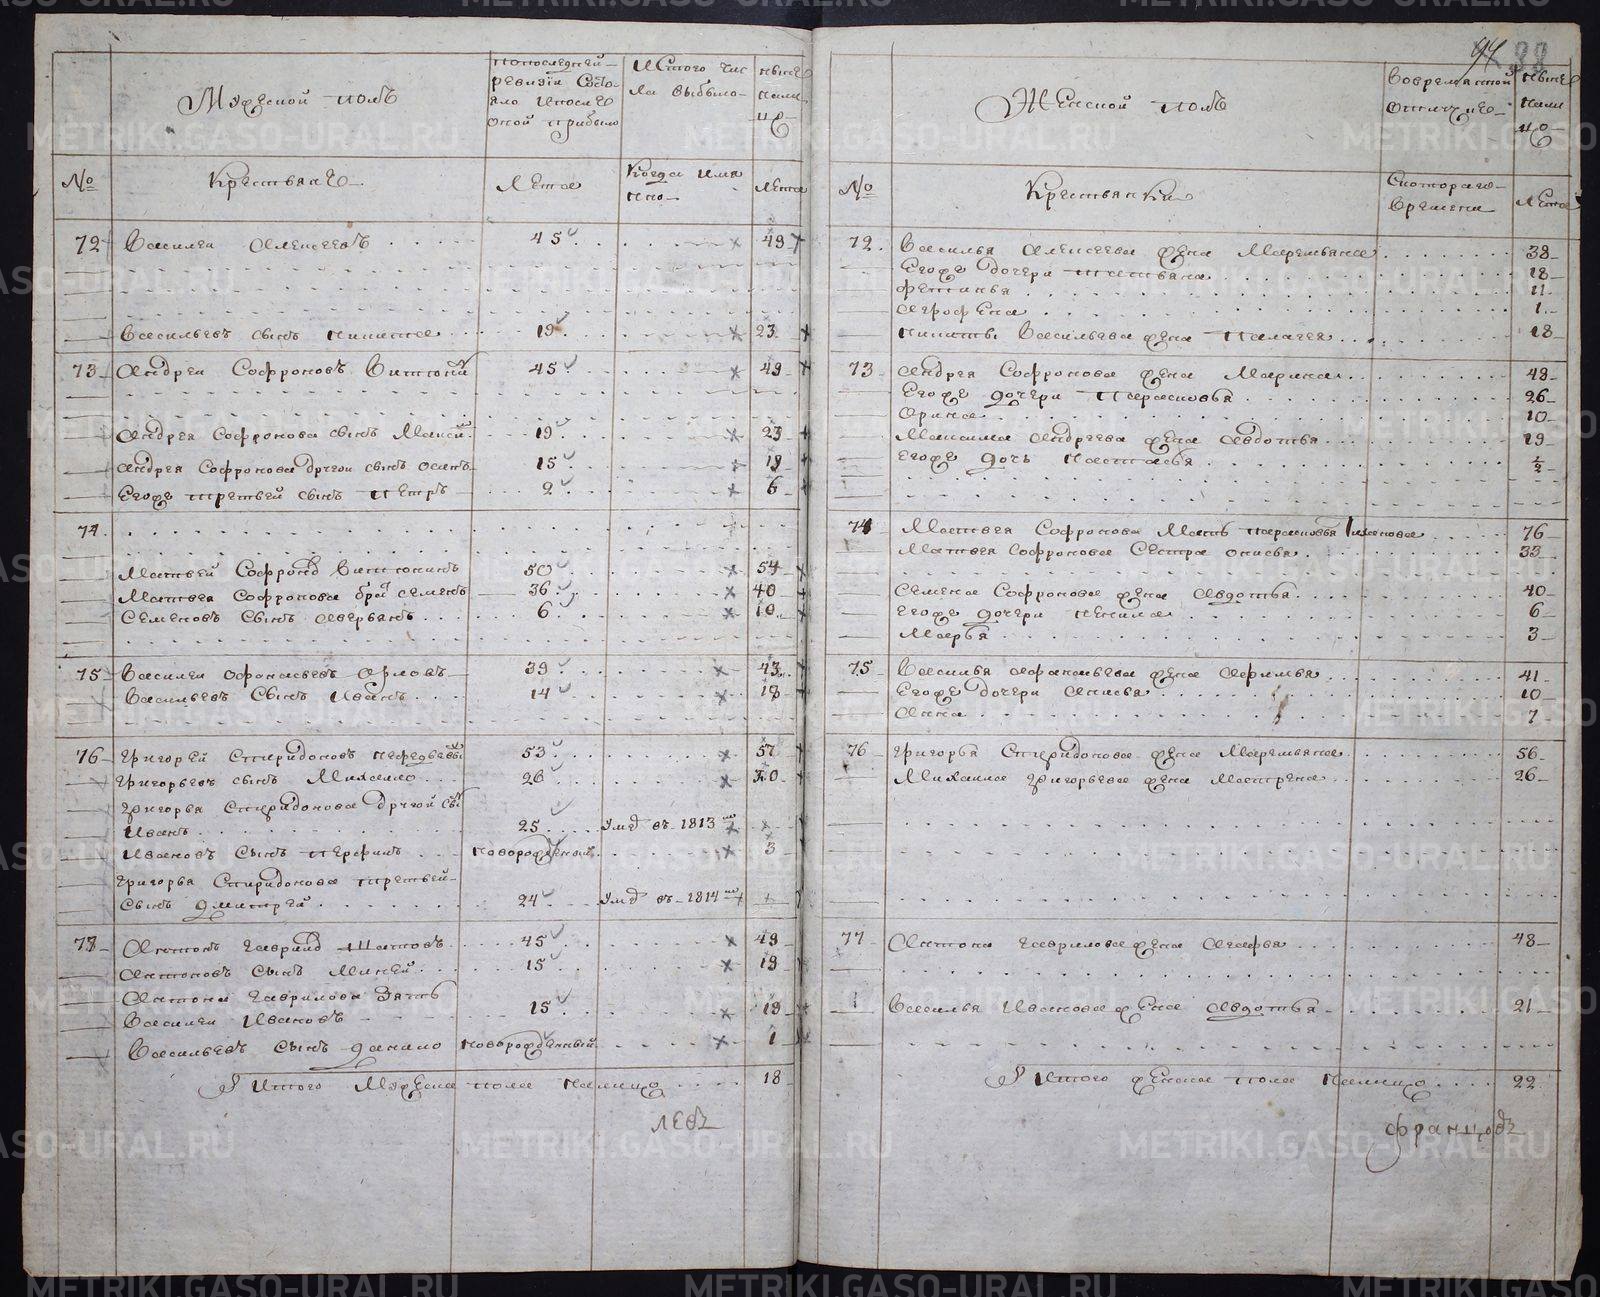 94 38
Мужеской полъ
По последней
ревизіи Состо-
яло и после
оной прибыло
Изтого чис
ла выбыло
Ныне
нали
цо
№
Крестьяне
Лета
Когда имя
нно
Лета
72 Василеи Алексеевъ 45 49
Васильевъ сынъ Никита 19 23
73 Андреи Софроновъ 45 49
Андрея Софронова сынъ 19 23
Андрея Софронова другои сынъ Осипъ 15 19
Егоже третьеи сынъ Петръ 2 6
74
Матвей Софроно 50 54
Матвея Софронова бра Семенъ 36 40
Семеновъ сынъ Аверьянъ 6 10
75 Василеи Афанасьевъ Орловъ 39 43
Васильевъ сынъ Иванъ 14 18
76 Григорей Спиридоновъ 53 57
Григорьевъ сынъ Михаило 26 30
Григорья Спиридонова другой
Иванъ 25 въ 1813
Ивановъ сынъ новорожденный 3
Григорья Спиридонова третьей
сынъ Дмитрей 24 въ 1814
77 Антонъ Гаврил Шатовъ 45 49
Антоновъ сынъ 15 19
Антона Гаврилова Зять
Василеи Ивановъ 15 19
Васильевъ сынъ Данило новорожденный 1
Итого Мужеска пола налицо 18
левъ
Женской полъ
Во временной
отлучке
Ныне
нали
цо
№
Крестьянки
Скоторого
времени
Лета
72 Василья Алексеева жена Маремьяна 38
Егоже дочери Татьяна 18
Фетинья 11
Аграфена 1
Никиты Васильева жена Пелагея 18
73 Андрея Софронова жена Марина 49
Егоже дочери Парасковья 26
Орина 10
Максима Андреева жена Авдотья 19
Егоже дочь Настасья ½
74 Матвея Софронова Мать Парасковья 76
Матвея Софронова Сестра Анисья 33
Семена Софронова жена Авдотья 40
Егоже дочери 6
Марья 3
75 Василья Афанасьева жена 41
Егоже дочери Анисья 10
Анна 7
76 Григорья Спиридонова жена Маремьяна 56
Михаила Григорьева жена Матрена 26
77 Антона Гаврилова жена Агафья 48
Василья Иванова жена Авдотья 21
Итого женска пола налицо 22
Францовъ
METRIKI.GASO-URAL.RU